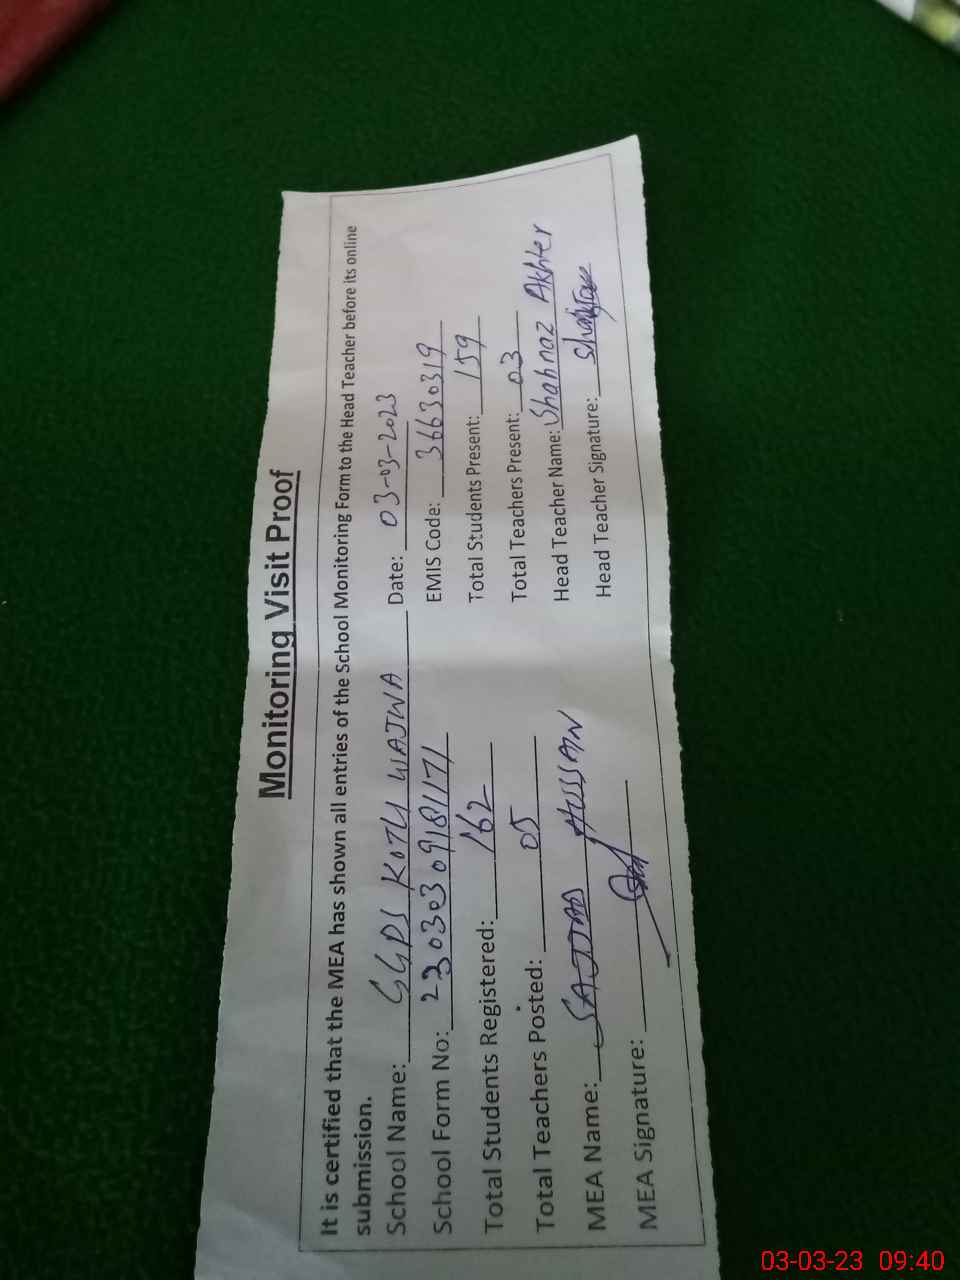 Monitoring Visit Proof
It is certified that the MEA has shown all entries of the School Monitoring Form to the Head Teacher before its online
submission.
School Name: GGPS KOTLI WAJWA Date: 03-03-2023
School Form No: 230303091811171 EMIS Code: 36630319
Total Students Registered: 162 Total Students Present: 159
Total Teachers Posted: 05 Total Teachers Present: 03
MEA Name: SAJJAD HUSSAIN Head Teacher Name: Shahnaz Akhter
MEA Signature: Head Teacher Signature:
03-03-23 09:40